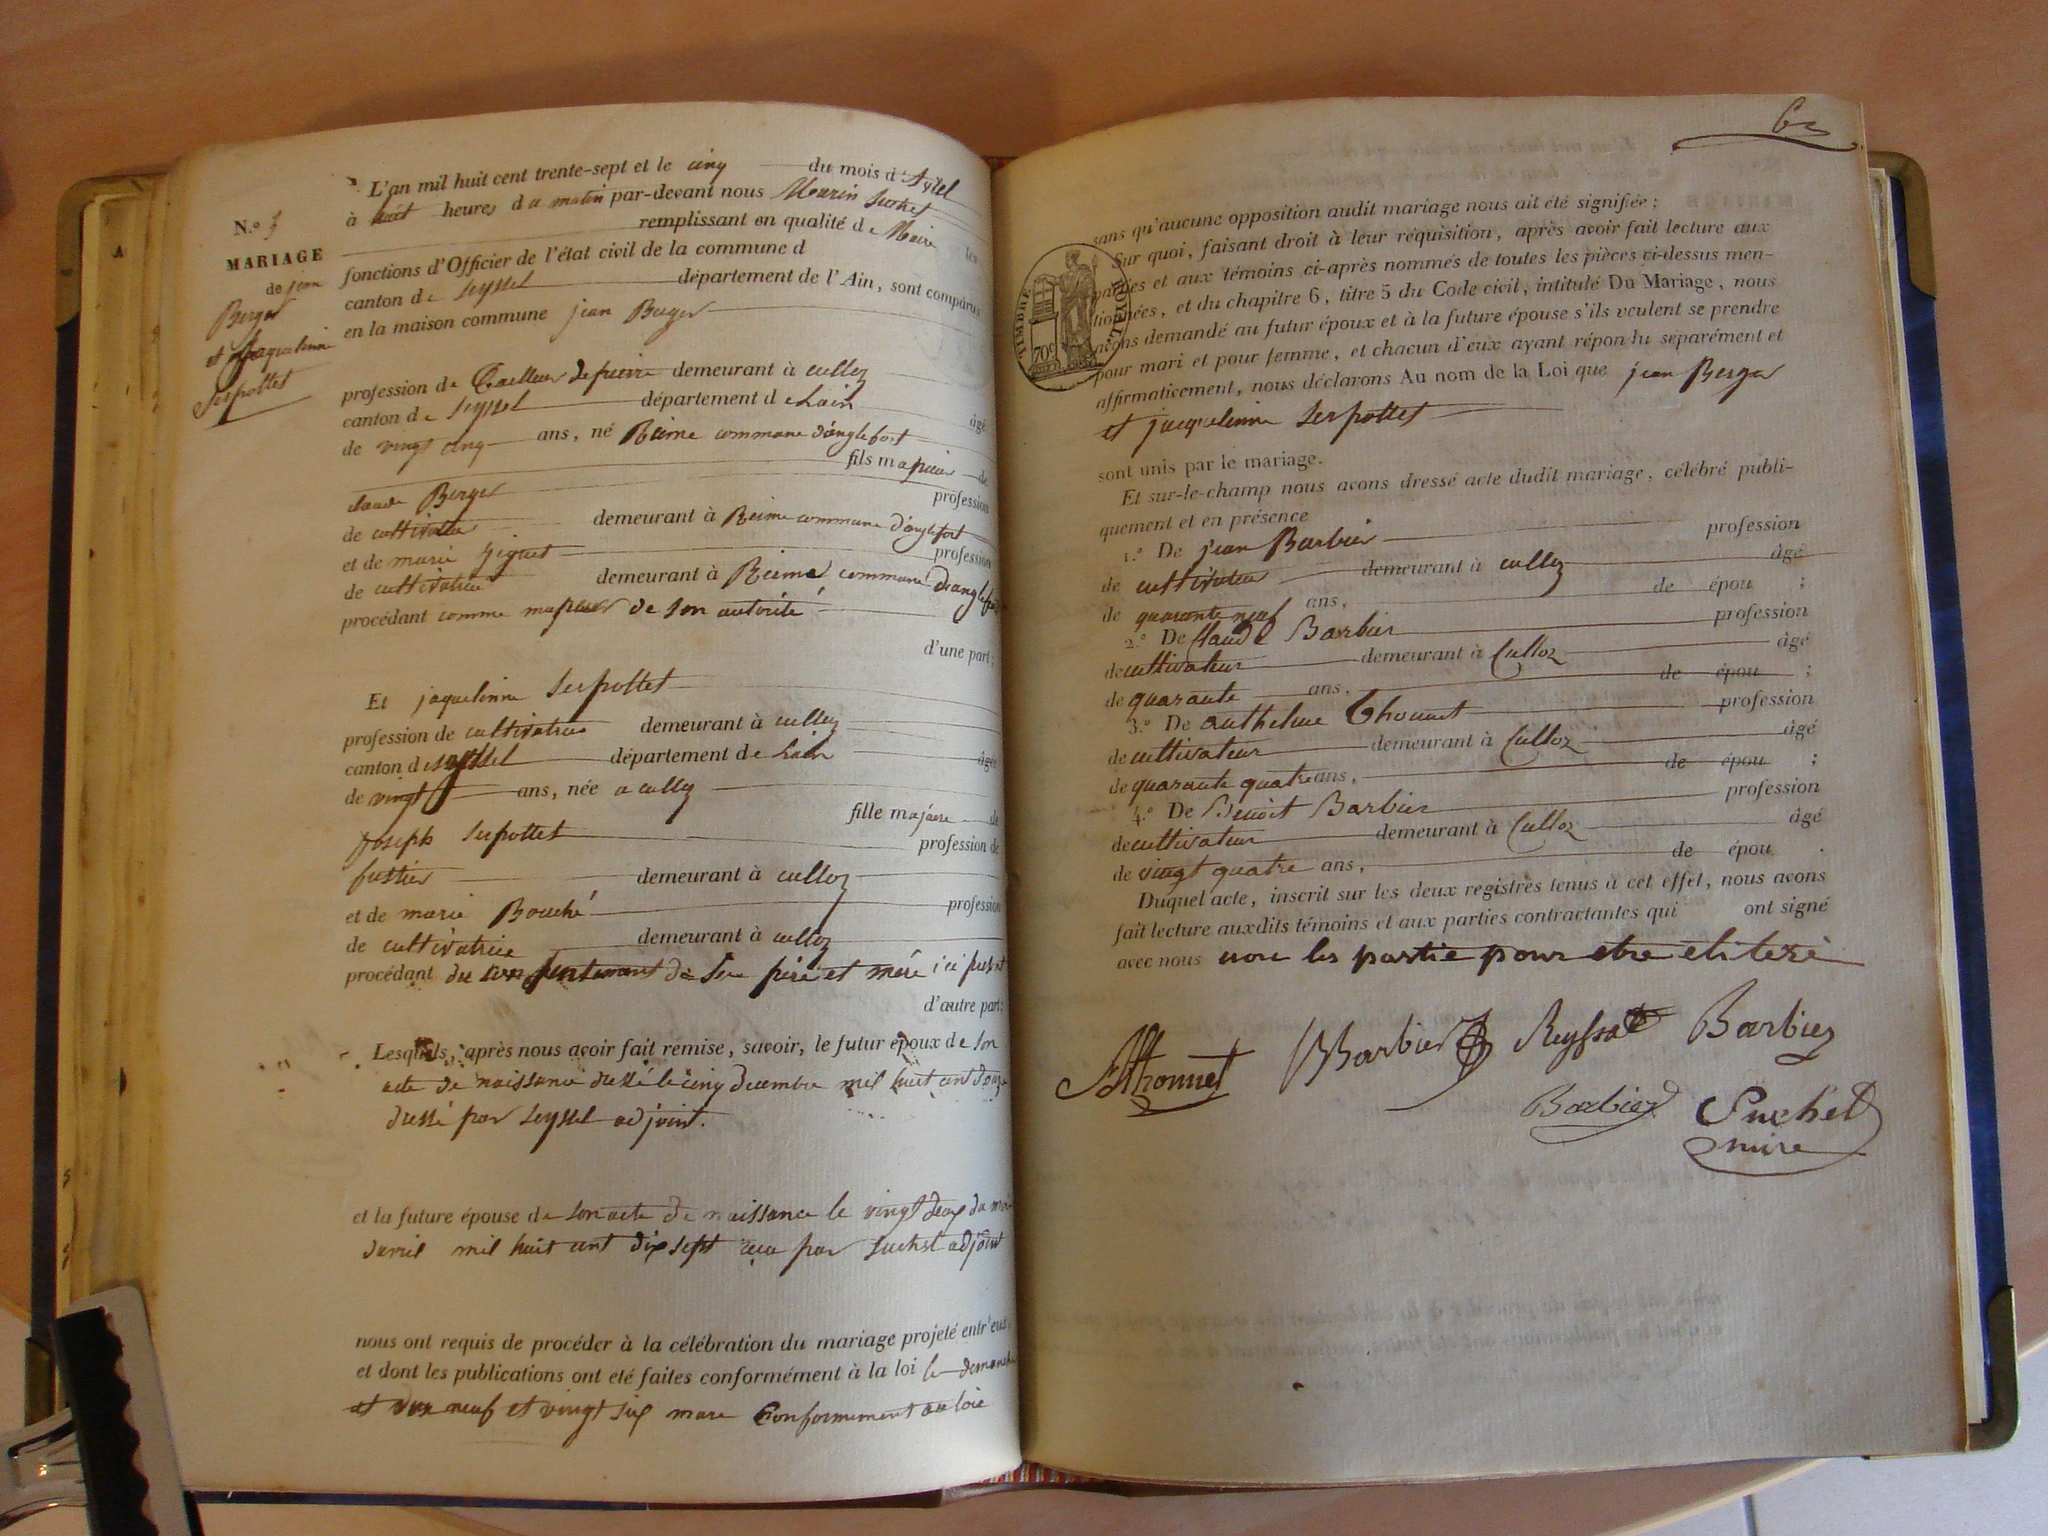 L'an mil huit cent trente-sept et le cinq du mois d'Avril
à huit heures du matin par-devant nous Suchet
remplissant en qualité de Maire les
fonctions d'Officier de l'état civil de la commune d
canton de Seyssel département de l'Ain, sont comparus
en la maison commune jean Berger
N.º
MARIAGE
de jean
Berger
et jaquelinne
Serpollet
profession de Tailleur de pierre demeurant à culloz
canton de Seyssel département de Lain âgé
de vingt cinq ans, né Reime commune d'anglefort
fils majeur de
claude Berger profession
de cultivateur demeurant à Reime commune d'anglefort
et de marie Giguet profession
de cultivatrice demeurant à Reime commune d'anglefort
procédant comme majeur de son autorité
d'une part;
Et jaquelinne Serpollet
profession de cultivatrice demeurant à culloz
canton de Seyssel département de Lain âgée
de vingt ans, née a culloz
fille majeure de
joseph Serpollet profession de
fustier demeurant à culloz
et de marie Bouché profession
de cultivatrice demeurant à culloz
procédant du consentement de père et mère ici
d'autre part;
Lesquels, après nous avoir fait remise, savoir, le futur époux de son
acte de naissance dressé le cinq decembre mil huit cent douze
dressé par Seyssel adjoint.
et la future épouse de son acte de naissance le vingt deux du mois
davril mil huit cent dix sept reçu par Suchet adjoint
nous ont requis de procéder à la célébration du mariage projeté entr'eux,
et dont les publications ont été faites conformément à la loi le demanche
et neuf et vingt six mars Conformement au loie
62
sans qu'aucune opposition audit mariage nous ait été signifiée;
Sur quoi, faisant droit à leur réquisition, après avoir fait lecture aux
parties et aux témoins ci-après nommés de toutes les pièces ci-dessus men-
tionnées, et du chapitre 6, titre 5 du Code civil, intitulé Du Mariage, nous
avons demandé au futur époux et à la future épouse s'ils veulent se prendre
pour mari et pour femme, et chacun d'eux ayant répondu séparément et
affirmativement, nous déclarons Au nom de la Loi que jean Berger
et jacquelinne Serpollet
TIMBRE ROYAL
70c
sont unis par le mariage.
Et sur-le-champ nous avons dressé acte dudit mariage, célébré publi-
quement et en présence
1.º De jean Barbier profession
de cultivateur demeurant à culloz âgé
de quarante neuf ans, de épou ;
2.º De Claude Barbier profession
de cultivateur demeurant à Culloz âgé
de quarante ans, de épou ;
3.º De anthelme Thonnet profession
de cultivateur demeurant à Culloz âgé
de quarante quatre ans, de épou ;
4.º De Benoit Barbier profession
de cultivateur demeurant à Culloz âgé
de vingt quatre ans, de épou .
Duquel acte, inscrit sur les deux registres tenus à cet effet, nous avons
fait lecture auxdits témoins et aux parties contractantes qui ont signé
avec nous non les partie pour etre eliteré
Thonnet Barbier Reyssat Barbier
Barbier Suchet
mire